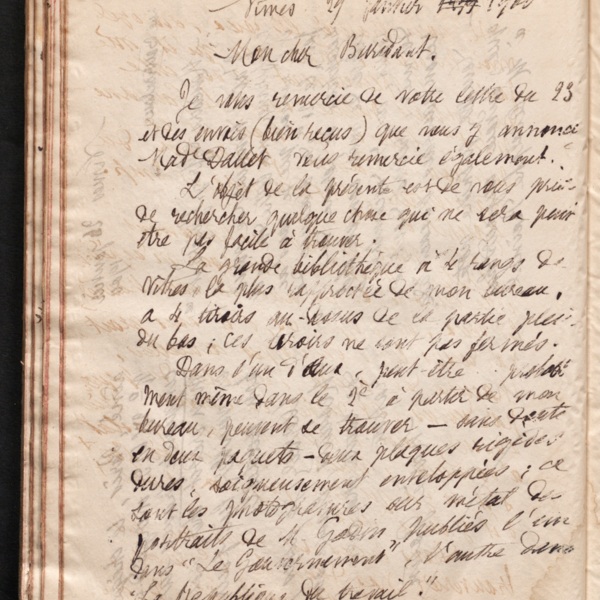 Nîmes 29 janvier 1900
Mon cher Buridant.
Je vous remercie de votre lettre du 23
et des envois (bien reçus) que vous y annoncé
Made Dallet vous remercie également.
L'objet de la présente est de vous prier
de rechercher quelque chose qui ne sera peut
être pas facile à trouver.
La grande bibliothèque à 4 rangs de
vitres, la plus rapprochée de mon bureau,
a 4 tiroirs au-dessus de la partie
du bas ; ces tiroirs ne sont pas fermés.
Dans l'un d'eux, peut-être
ment même dans le 2e à partir de mon
bureau, peuvent se trouver – sans doute
en deux paquets – deux plaques rigides
dures, soigneusement enveloppées ; ce
sont les photogravures sur métal des
portraits de M. Godin publiés l'un
dans "Le Gouvernement", l'autre dans
"La République du travail."